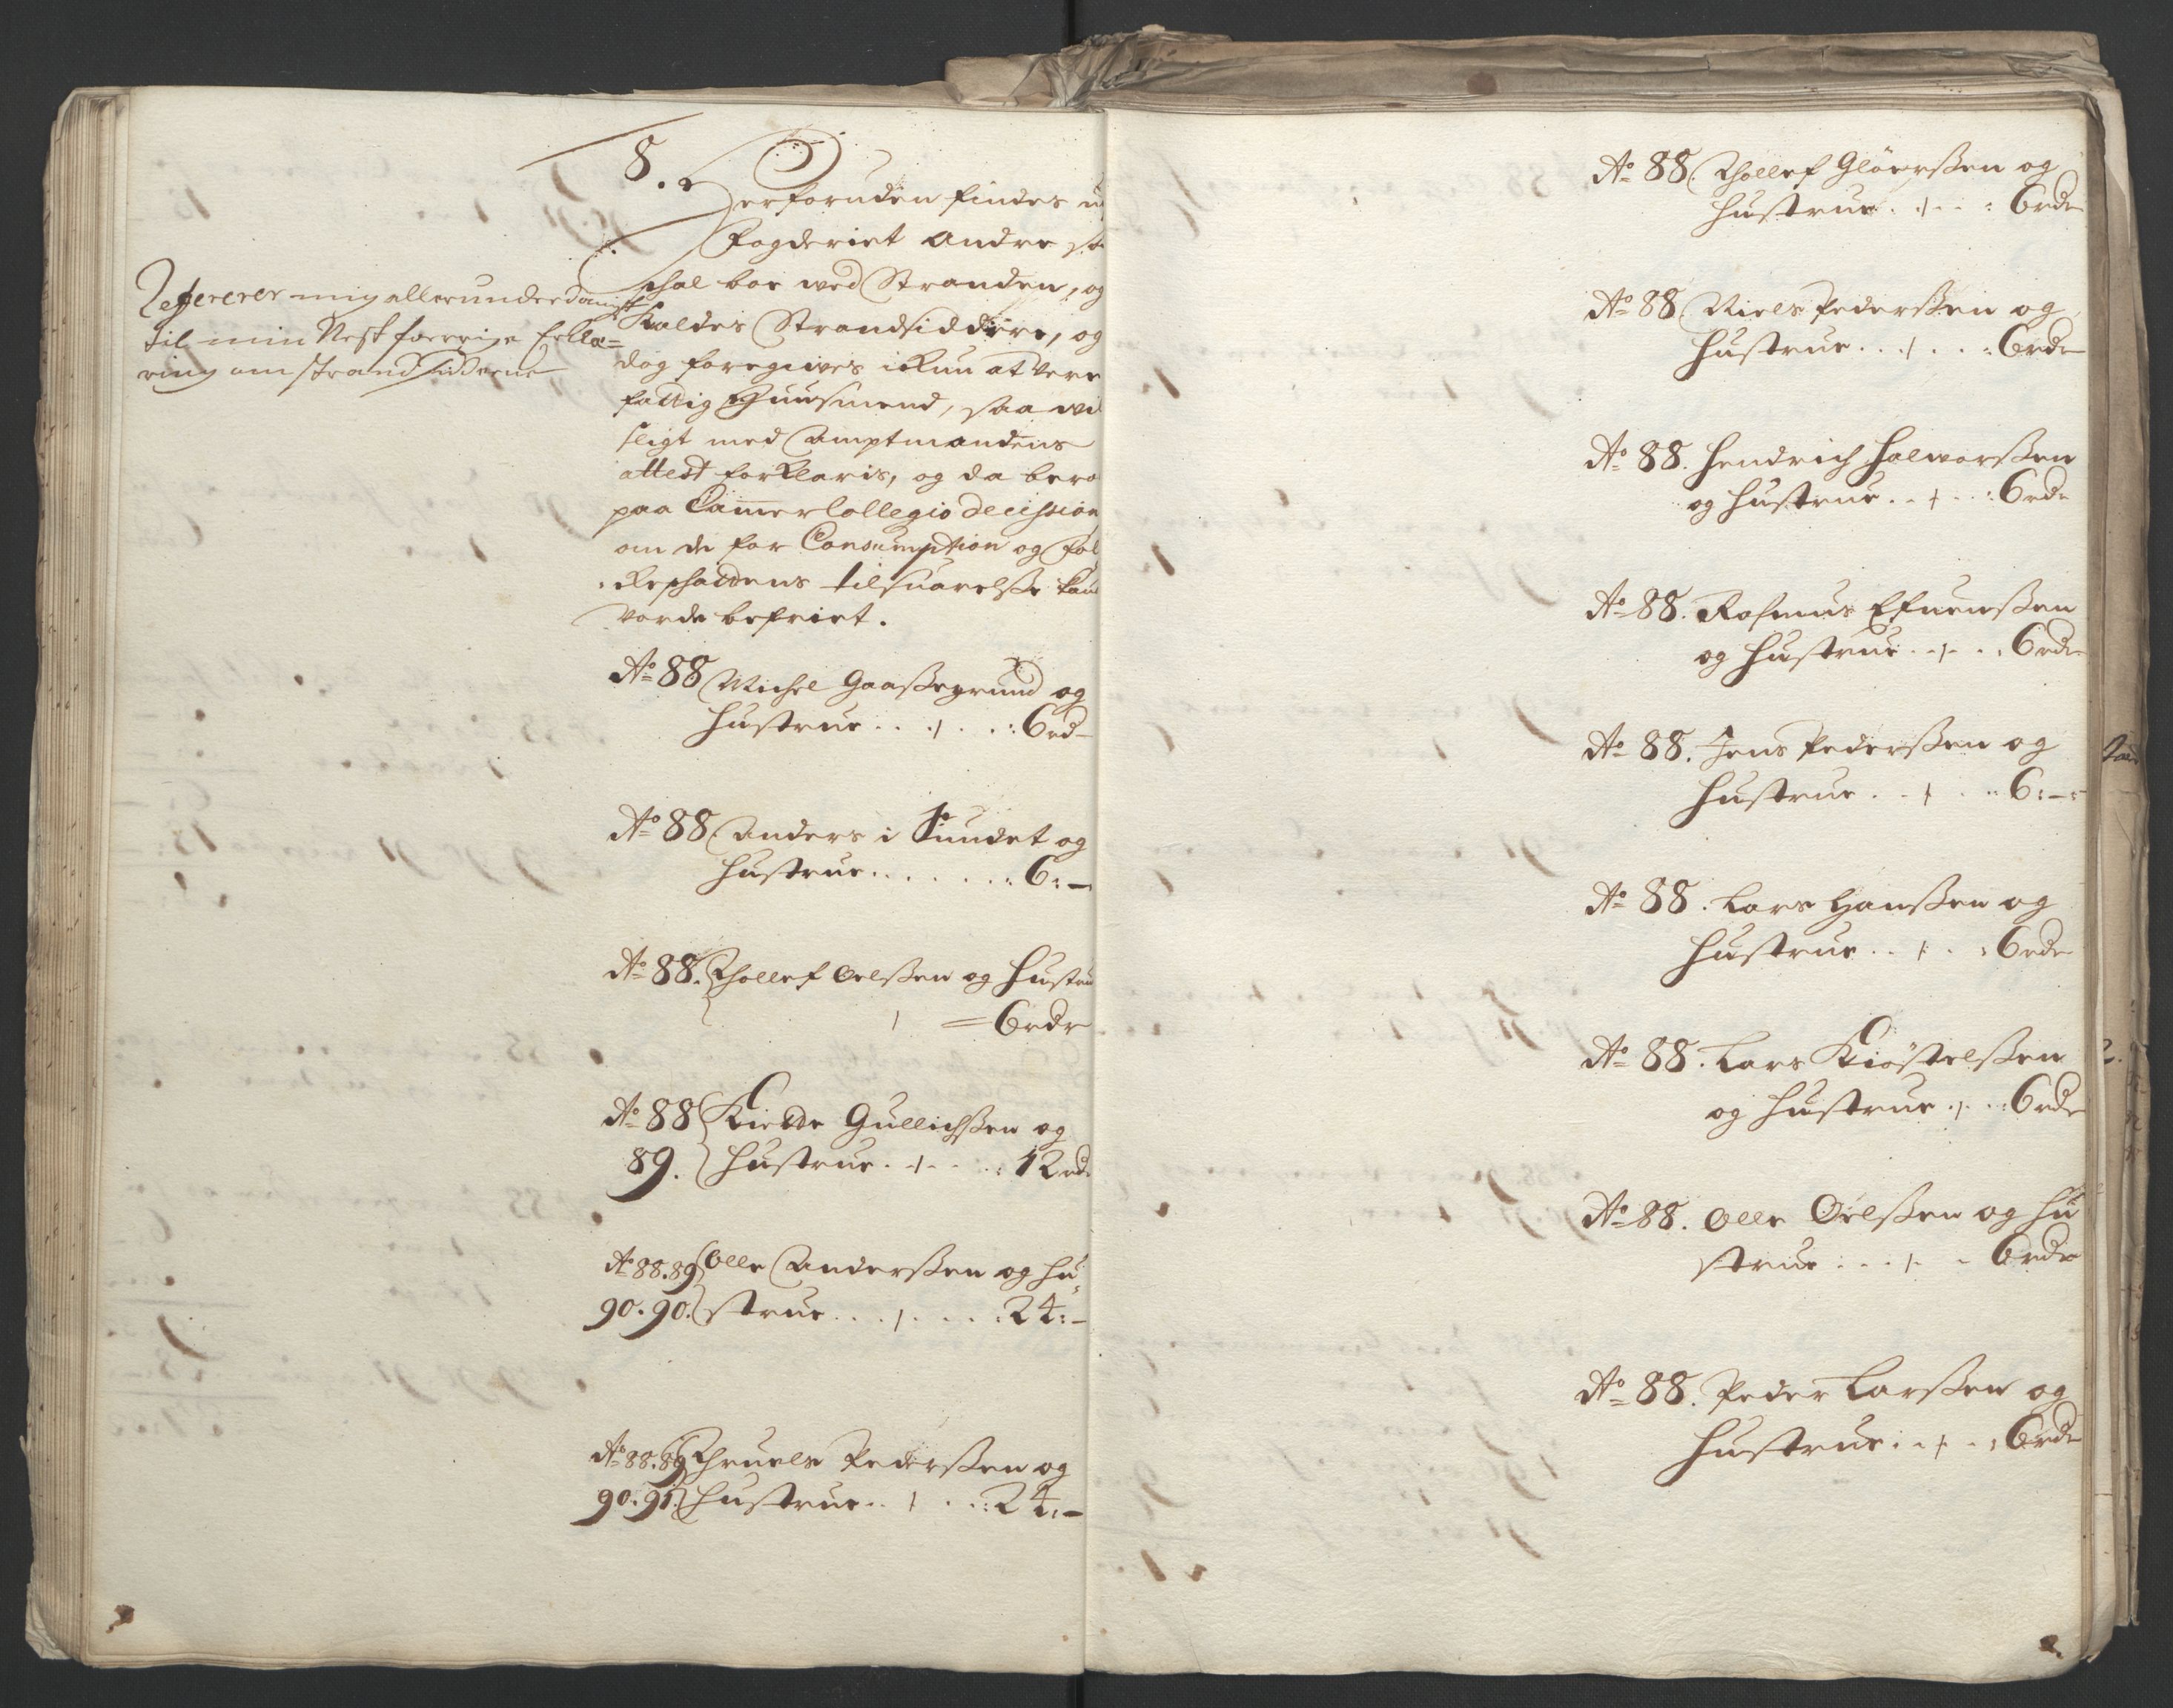 Refererer mig allerunderdanigst
til min Nest forrige Erklæ=
ring om strandsidderne
8.
Herforuden findes u
fogderiet andre so
schal boe wed Stranden, og
Kaldes Strandsiddere, og
dog foregiwes ickun at vere
fattig Huusmend, saa wil
sligt med Amptmandens
attest forklaris, og da bero
paa Camer Collegio decission
om de for Consumption og fol
keschattens tilsuarelsse kand
vorde befriet.
Ao 88 Michel Gaassegrund og
hustrue . . 1 . . : 6 rd
Ao 88 Anders i Sundet og
hustrue . . . . . . : 6 : -
Ao 88. Thollef Oelssen og hustru
1 = 6 rdr
Ao 88 Kiette Gullichssen og
89. hustrue . 1 . . . : 12 rd
Ao 88. 89 Olle Anderssen og hu
90. 90. strue . . . 1 . . . : 24 : -
Ao 88. 89 Thruels Pederssen og
90. 91. hustrue . . 1 . . : 24 : -
Ao 88. Thollef Glöerssen og
hustrue . 1 . . : 6 rdr
Ao 88 Niels Pederssen og
hustrue . . 1 . . : 6 rdr
Ao 88. Hendrich Halworssen
og hustrue . . 1 . . : 6 rdr
Ao 88. Rasmus Efuenssen
og hustrue . . 1 . . : 6 rdr
Ao 88. Jens Pederssen og
hustrue . . 1 . . : 6 : - :
Ao 88. Lars Hanssen og
hustrue . . 1 . . : 6 rdr
Ao 88. Lars Kiöstelssen
og hustrue . 1 . . : 6 rdr
Ao 88. Olle Oelssen og hu
strue : . . 1 . . 6 rdr
Ao 88. Peder Larssen og
hustrue : . . 1 . . : 6 rdr